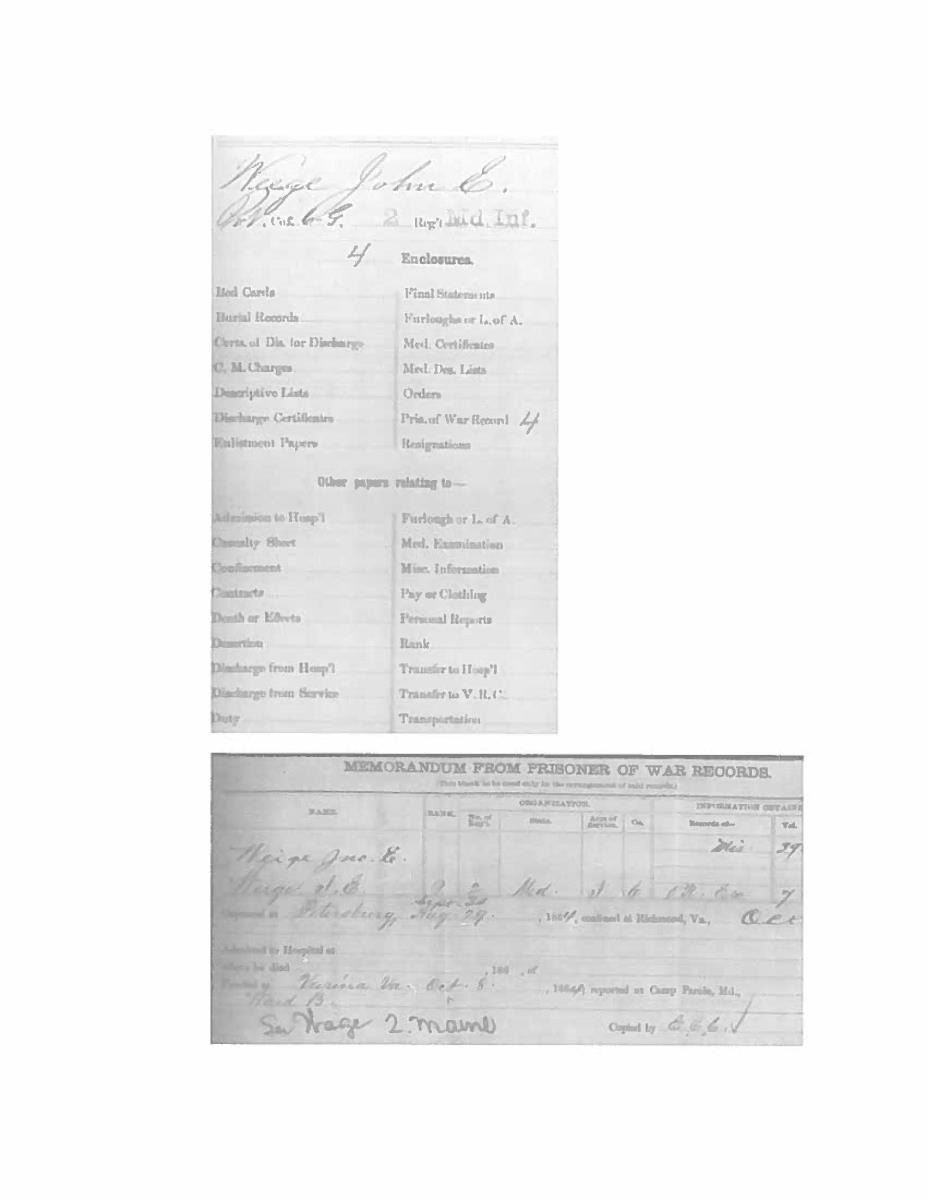 Weige John E.
Pvt. Co. G. 2 Reg't Md. Inf.
4 Enclosures.
Bed Cards Final Statements
Burial Records Furloughs or L. of A.
Certs. of Dis. for Discharge Med. Certificates
C. M. Charges Med. Des. Lists
Descriptive Lists Orders
Discharge Certificates Pris. of War Record 4
Enlistment Papers Resignations
Other papers relating to—
Admission to Hosp'l Furlough or L. of A.
Casualty Sheet Med. Examination
Confinement Misc. Information
Contracts Pay or Clothing
Death or Effects Personal Reports
Desertion Rank
Discharge from Hosp'l Transfer to Hosp'l
Discharge from Service Transfer to V. R. C.
Duty Transportation
MEMORANDUM FROM PRISONER OF WAR RECORDS.
(This blank to be used only in the arrangement of said records.)
ORGANIZATION. INFORMATION OBTAINE
NAME. RANK. No. of Reg't. State. Arm of Service. Co. Records of— Vol.
Mis 29
Weige Jno. E.
Weige J. E. 2 Md. I G 7
Sept. 30
Captured at Petersburg, Aug. 29. , 1864, confined at Richmond, Va., Oct
Admitted to Hospital at
where he died , 186 , of
Paroled at Varina Va. Oct. 8. , 1864; reported at Camp Parole, Md.,
Ward B.
See Wage 2. Maine Copied by